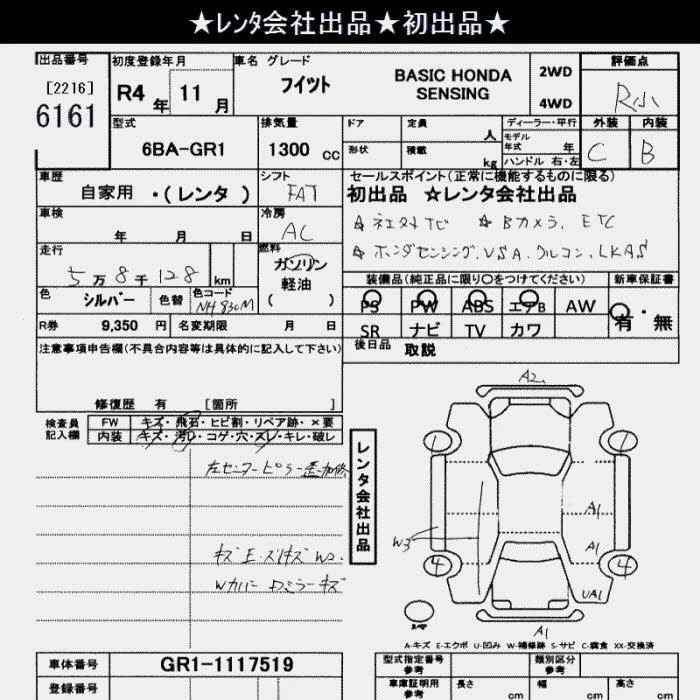 ★レンタ会社出品★初出品★
出品番号 初度登録年月 車名 グレード 評価点
[2216] R4年 11月 フイット BASIC HONDA SENSING 2WD R小
6161 4WD
型式 排気量 ドア 定員 人 ディーラー・平行 外装 内装
6BA-GR1 1300 cc 形状 積載 kg モデル年式 年 C B
ハンドル 右・左
車歴 シフト セールスポイント(正常に機能するものに限る)
自家用 ・(レンタ) FAT 初出品 ☆レンタ会社出品
車検 年 月 日 冷房 AC ☆純正ナビ ☆Bカメラ、ETC
走行 燃料 ☆ホンダセンシング、VSA、クルコン、LKAS
5万8千128 km ガソリン 軽油 ( ) 装備品(純正品に限り〇をつけてください) 新車保証書
色 シルバー 色替 色コード NH830M PS PW ABS エアB AW 有・無
R券 9,350 円 名変期限 月 日 SR ナビ TV カワ
注意事項申告欄(不具合内容等は具体的に記入して下さい) 後日品 取説
修復歴 有 [箇所 ]
検査員記入欄 FW キズ・飛石・ヒビ割・リペア跡・×要
内装 キズ・汚レ・コゲ・穴・スレ・キレ・破レ
左センターピラー歪加修
キズ E・スリキズ W2、
Wカバー ドアミラーキズ
レンタ会社出品
A2
1 1
A1
W3 A1
4 4
UA1
スペア
A1
A-キズ E-エクボ U-凹み W-補修跡 S-サビ C-腐食 XX-交換済
車体番号 GR1-1117519 型式指定番号 参考 類別区分 参考
登録番号 車庫証明用 参考 長さ cm 幅 cm 高さ cm